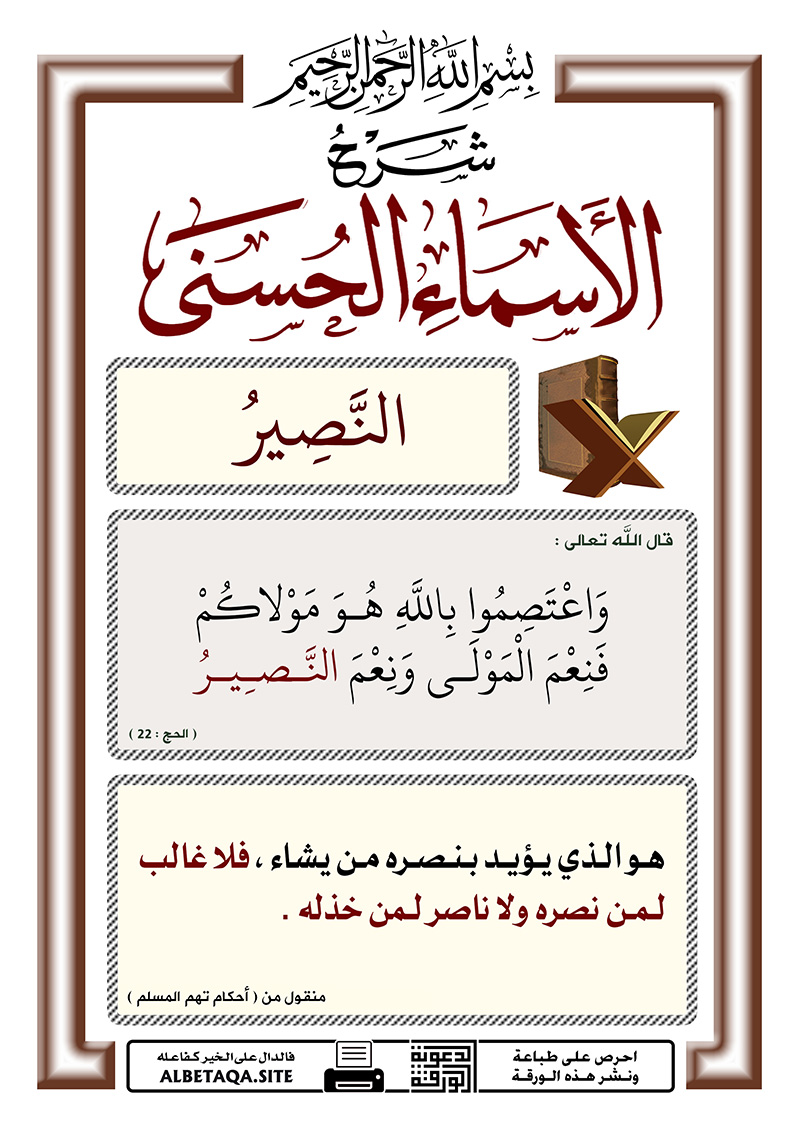 بِسْمِ اللَّهِ الرَّحْمَنِ الرَّحِيمِ
شَرْحُ
الأَسْمَاءِ الحُسْنَى
النَّصِيرُ
قال اللَّه تعالى :
وَاعْتَصِمُوا بِاللَّهِ هُوَ مَوْلاكُمْ
فَنِعْمَ الْمَوْلَى وَنِعْمَ النَّصِيرُ
( الحج : 22 )
هو الذي يؤيد بنصره من يشاء ، فلا غالب
لمن نصره ولا ناصر لمن خذله .
منقول من ( أحكام تهم المسلم )
احرص على طباعة
ونشر هذه الورقة
الدعوية
الورقة
فالدال على الخير كفاعله
ALBETAQA.SITE